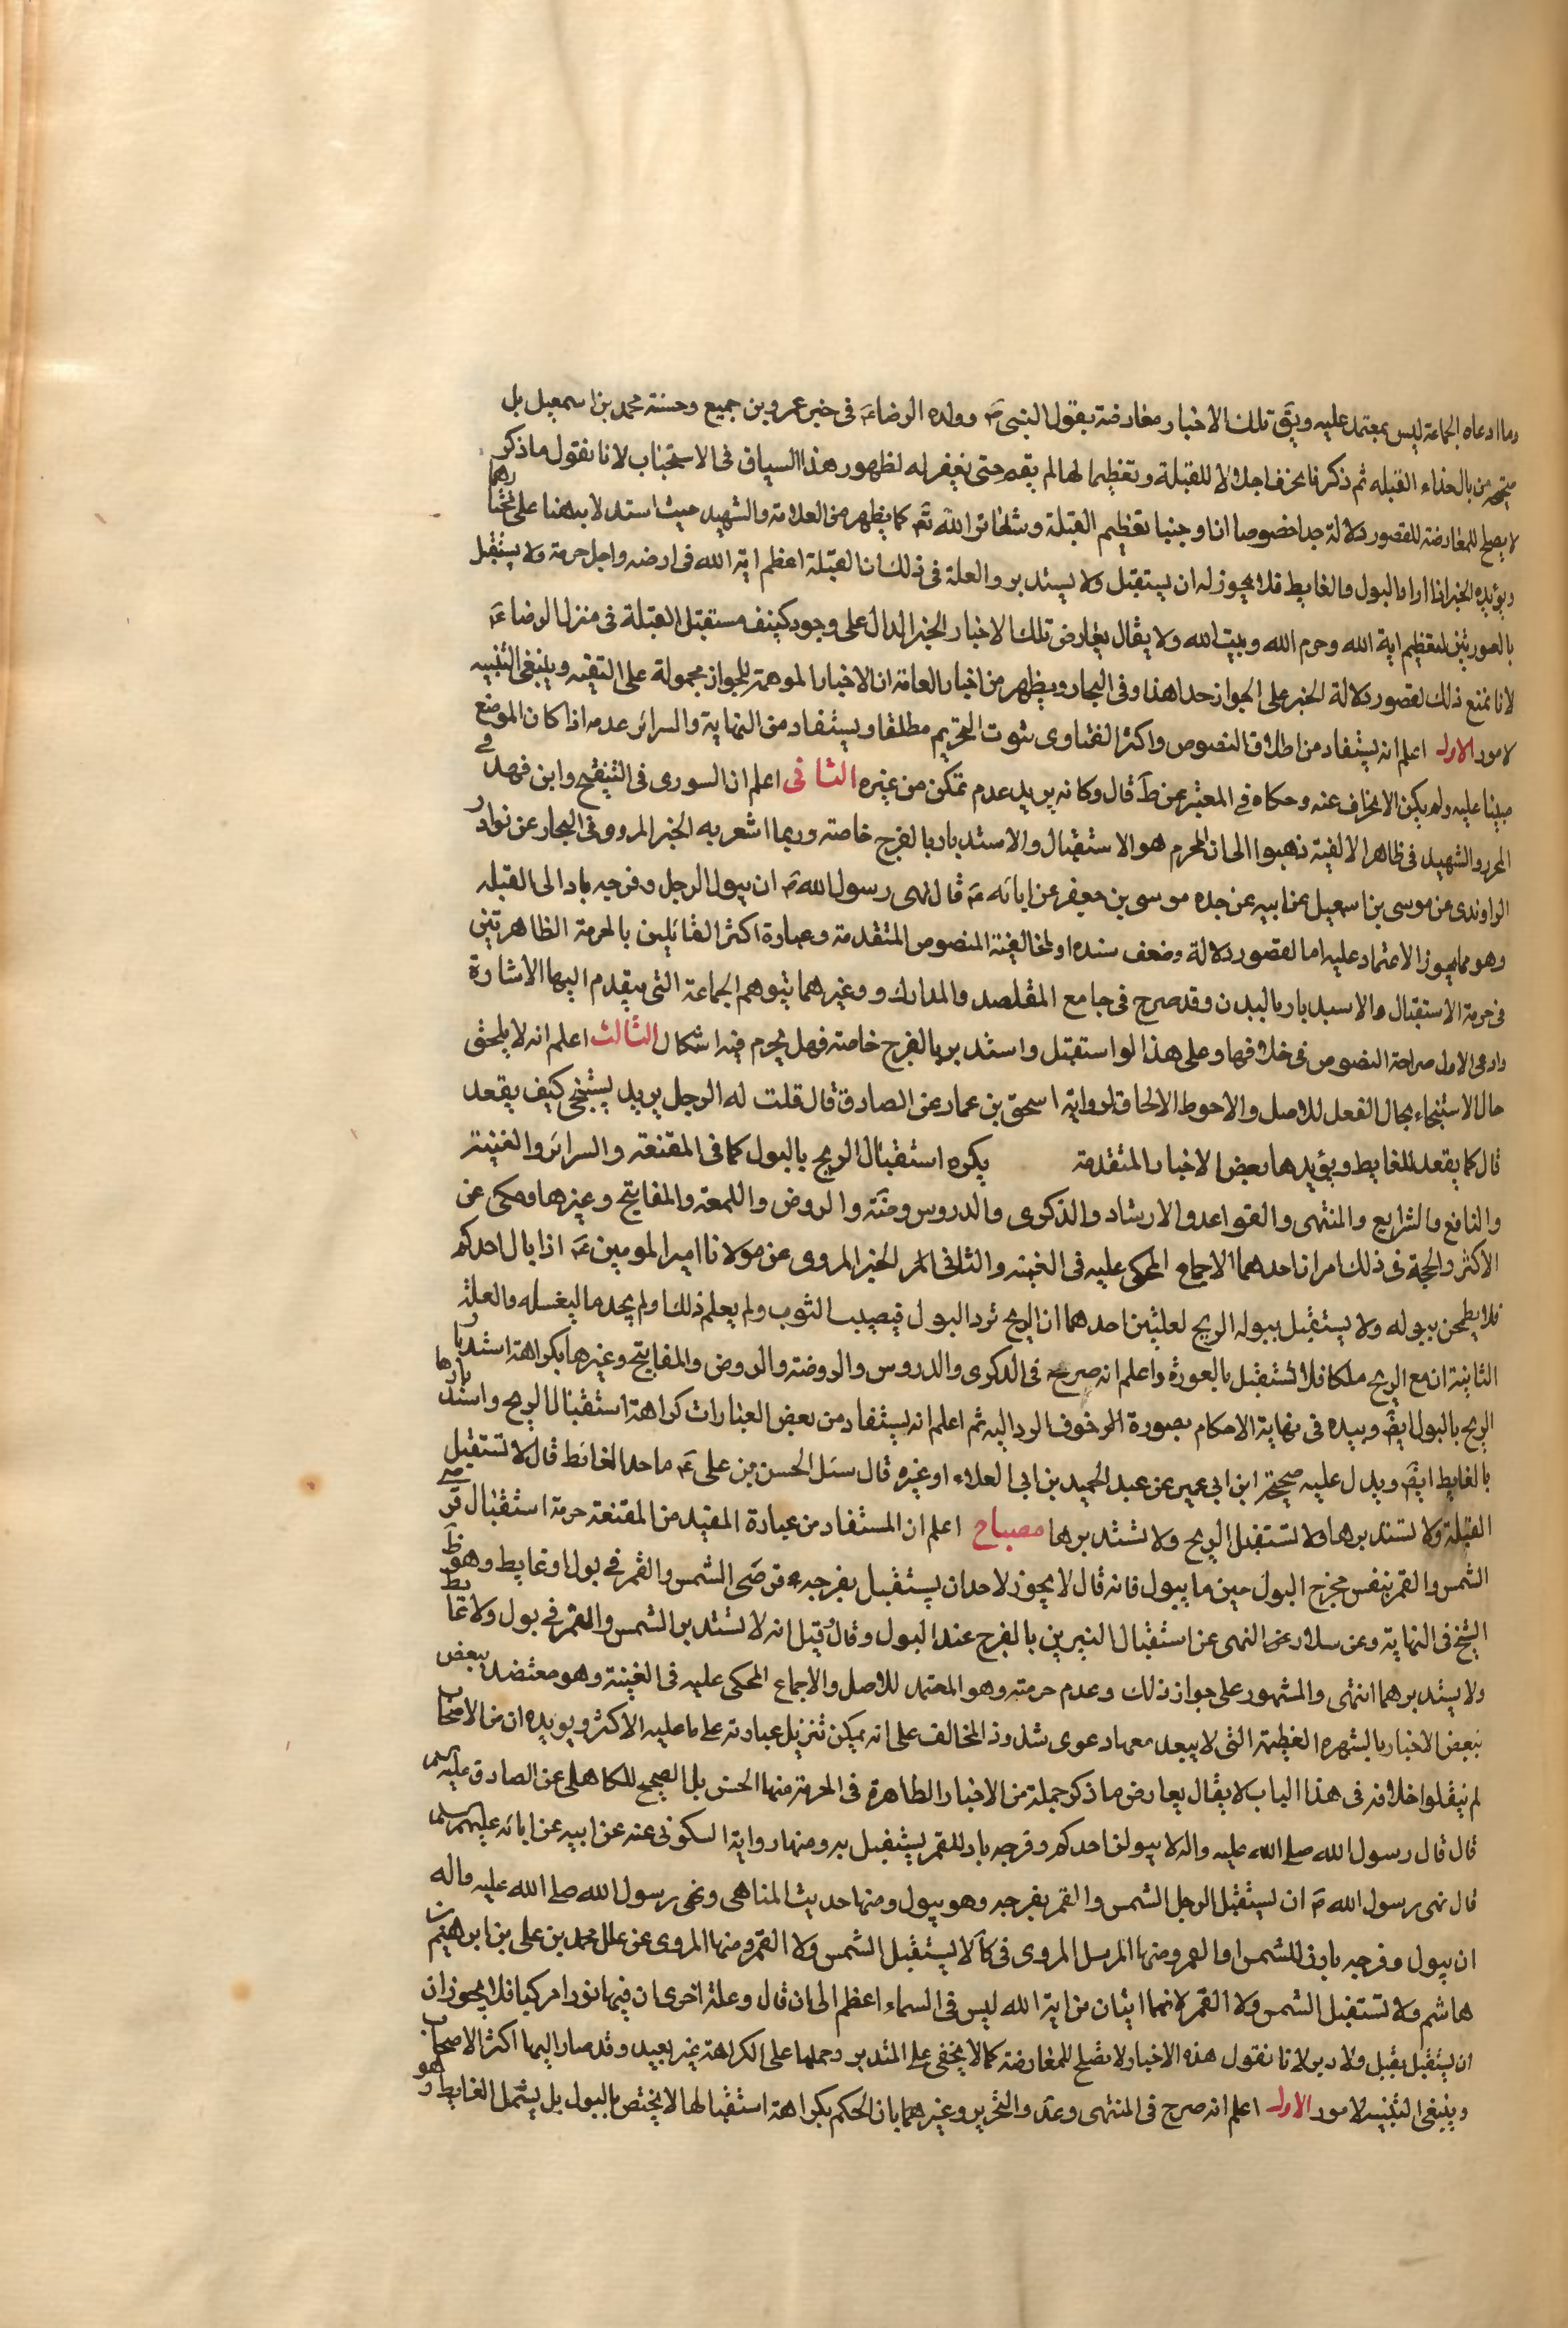 وما ادعاه الجماعة ليس بمعتمد عليه وبقى تلك الاخبار معارضة بقول النبى ص وولده الرضا ع فى خبر عمرو بن جميع وحسنة محمد بن اسمعيل بل
من بال حذاء القبله ثم ذكر فانحرف اجلالا للقبلة وتعظيما لها لم يقم حتى يغفر له لظهور هذا السياق فى الاستحباب لانا نقول ما ذكر
لا يصلح للمعارضة للقصور دلالة جدا خصوصا ان اوجبنا تعظيم القبلة وشعائر الله تع كما يظهر من العلامة والشهيد حيث استدلا بهنا على تحتا رهما
ويؤيده الخبر اذا اراد البول والغايط فلا يجوز له ان يستقبل ولا يستدبر والعلة فى ذلك ان القبلة اعظم اية الله فى ارضه واجل حرمة ولا يستقبل
بالعورتين لتعظيم اية الله وحرم الله وبيت الله ولا يقال يعارض تلك الاخبار الخبر الدال على وجود كنيف مستقبل القبلة فى منزل الرضا ع
لانا نمنع ذلك لقصور دلالة الخبر على الجواز جدا هذا وفى البحار ويظهر من اخبار العامة ان الاخبار الموهمة للجواز محمولة على التقيه وينبغى التنبيه
لامور الاول اعلم انه يستفاد من اطلاق النصوص واكثر الفتاوى ثبوت التحريم مطلقا ويستفاد من النهاية والسرائر عدمه اذا كان الموضع
مبنيا عليه ولم يكن الانحراف عنه وحكاه فى المعتبر عن ط قال وكانه يريد عدم تمكن من غيره الثانى اعلم ان السورى فى التنقيح وابن فهد فى
المحرر والشهيد فى ظاهر الالفية ذهبوا الى ان المحرم هو الاستقبال والاستدبار بالفرج خاصة وربما اشعر به الخبر المروى فى البحار عن نوادر
الراوندى عن موسى بن اسمعيل عن ابيه عن جده موسى بن جعفر عن ابائه ع قال نهى رسول الله ص ان يبول الرجل وفرجه باد الى القبله
وهو مما يجوز الاعتماد عليه اما لقصور دلالة وضعف سنده او لمخالفية النصوص المتقدمة وعبارة اكثر القائلين بالحرمة الظاهرتين
فى حرمة الاستقبال والاستدبار بالبدن وقد صرح فى جامع المقاصد والمدارك و وغيرهما بتوهم الجماعة التى يتقدم اليها الاشارة
وادعى الاول صراحة النصوص فى خلافها وعلى هذا لو استقبل واستدبر بالفرج خاصة فهل يحرم فيه اشكال الثالث اعلم انه لا يلحق
حال الاستنجاء بحال الفعل للاصل والاحوط الالحاق لرواية اسحق بن عمار عن الصادق قال قلت له الرجل يريد يستنجى كيف يقعد
قال كما يقعد للغايط ويؤيدها بعض الاخبار المتقدمة يكره استقبال الريح بالبول كما فى المقنعة والسرائر والغنية
والنافع والشرايع والمنتهى والقواعد والارشاد والذكرى والدروس وضة والروض واللمعة والمفاتيح وغيرها وحكى عن
الاكثر والحجة فى ذلك امران احدهما الاجماع المحكى عليه فى الغنية والثانى الخبر المروى عن مولانا امير المومنين ع اذا بال احدكم
فلا يطمحن ببوله ولا يستقبل ببوله الريح لعلتين احدهما ان الريح ترد البول فيصيب الثوب ولم يعلم ذلك ولم يجد ما ليغسله والعلة
الثانية ان مع الريح ملكا فلا تستقبل بالعورة واعلم انه صرح فى الذكرى والدروس والروضة والروض والمفاتيح وغيرها بكراهة استدبار
الريح بالبول ايض وبيده فى نهاية الاحكام بصورة الرخوف الرد اليه ثم اعلم انه يستفاد من بعض العبارات كراهة استقبال الريح واستدبارها
بالغايط ايض ويدل عليه صحيحة ابن ابى عمير عن عبد الحميد بن ابى العلاء او غيره قال سئل الحسن بن على ع ما حد الغائط قال لا تستقبل
القبلة ولا تستدبرها ولا تستقبل الريح ولا تستدبرها مصباح اعلم ان المستفاد من عبارة المفيد من المقنعة حرمة استقبال قرصى
الشمس والقمر بنفس مخرج البول حين ما يبول فانه قال لا يجوز لاحد ان يستقبل بفرجه قرصى الشمس والقمر فى بول او غايط وهو ظ
الشيخ فى النهاية وعن سلار عن النهى عن استقبال النيرين بالفرج عند البول وقال وقيل انه لا تستدبر الشمس والقمر فى بول ولا غايط
ولا يستدبرهما انتهى والمشهور على جواز ذلك وعدم حرمته وهو المعتمد للاصل والاجماع المحكى عليه فى الغنية وهو معتضد ببعض
ببعض الاخبار بالشهره العظيمة التى لا يبعد معها دعوى شذوذ المخالف على انه يمكن تنزيل عبارته على ما عليه الاكثر ويويده ان من الاصحاب
لم ينقلوا خلافه فى هذا الباب لا يقال يعارض ما ذكر جملة من الاخبار الظاهرة فى الحرمة منها الحسن بل الصحيح للكاهلى عن الصادق عليه السلم
قال قال رسول الله صلى الله عليه واله لا يبولن احدكم وفرجه باد للقمر يستقبل به ومنها رواية السكونى عنه عن ابيه عن ابائه عليهم السلم
قال نهى رسول الله ص ان يستقبل الرجل الشمس والقمر بفرجه وهو يبول ومنها حديث المناهى ونهى رسول الله صلى الله عليه واله
ان يبول وفرجه بادى للشمس او القمر ومنها المرسل المروى فى كا لا يستقبل الشمس ولا القمر ومنها المروى عن علل محمد بن على بن ابرهيم بن
هاشم ولا تستقبل الشمس ولا القمر لانهما ايتان من اية الله ليس فى السماء اعظم الى ان قال وعلة اخرى ان فيها نورا مركبا فلا يجوز ان
ان يستقبل بقبل ولا دبر لانا نقول هذه الاخبار لا تصلح للمعارضة كما لا يخفى على المتدبر وحملها على الكراهة غير بعيد وقد صار اليها اكثر الاصحاب
وينبغى التنبيه لامور الاول اعلم انه صرح فى المنتهى وعد والتحرير وغيرهما بان الحكم بكراهة استقبالها لا يختص بالبول بل يشمل الغايط وهو